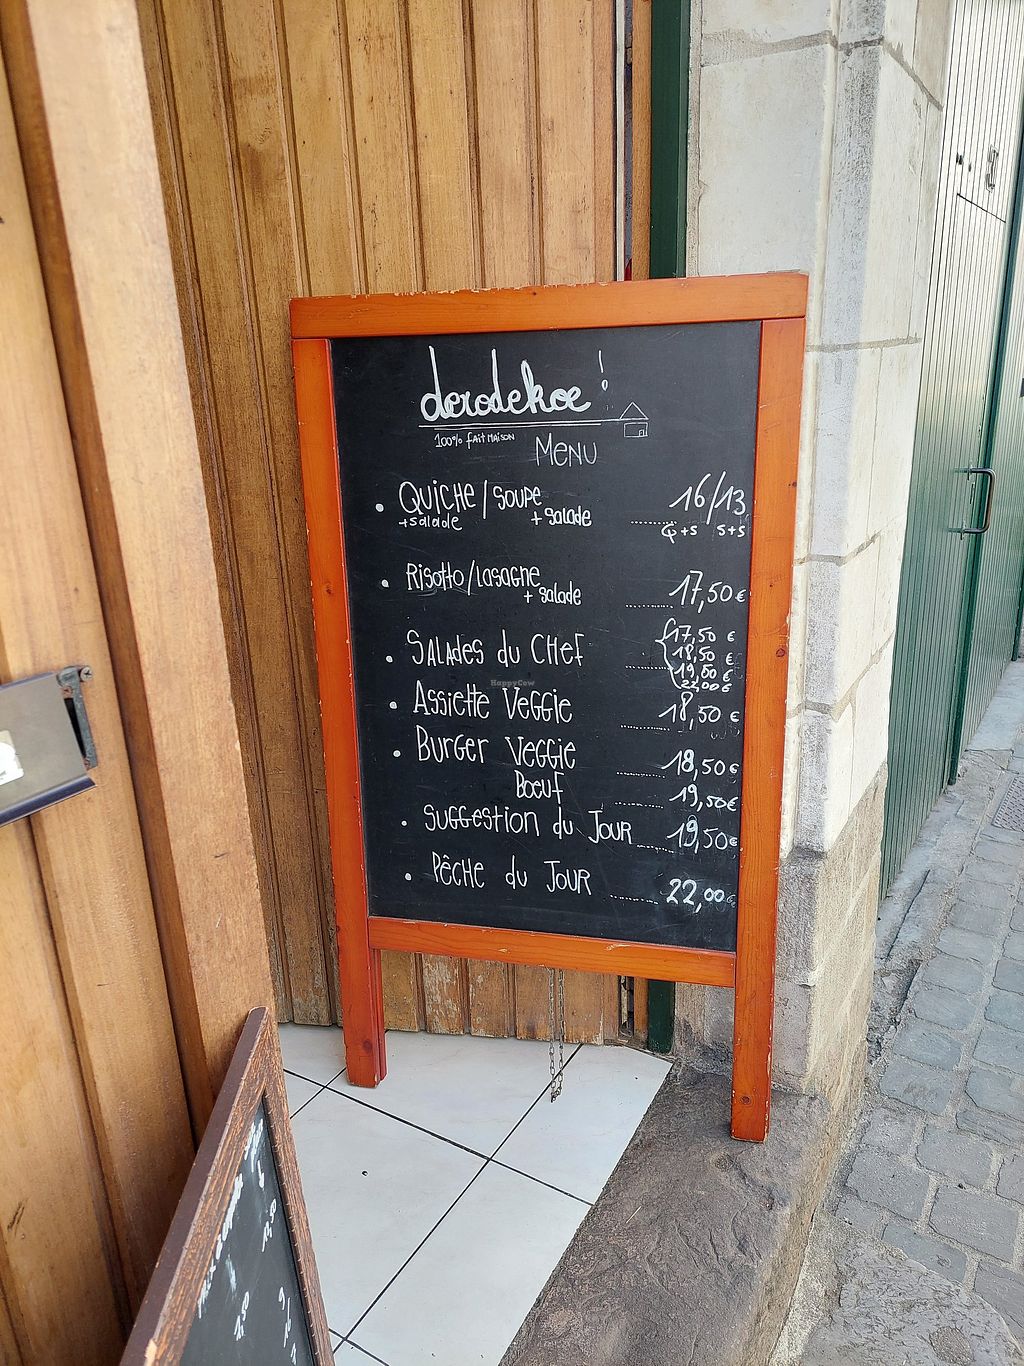 derodekoe!
100% fait maison
Menu
• Quiche/soupe 16/13
+salade + salade Q+S S+S
• Risotto/Lasagne
+ salade 17,50€
17,50 €
• Salades du Chef 18,50 €
19,50 €
22,00€
• Assiette Veggie 18,50€
• Burger Veggie 18,50€
Boeuf 19,50€
• Suggestion du Jour 19,50€
• Pêche du Jour 22,00€
HappyCow